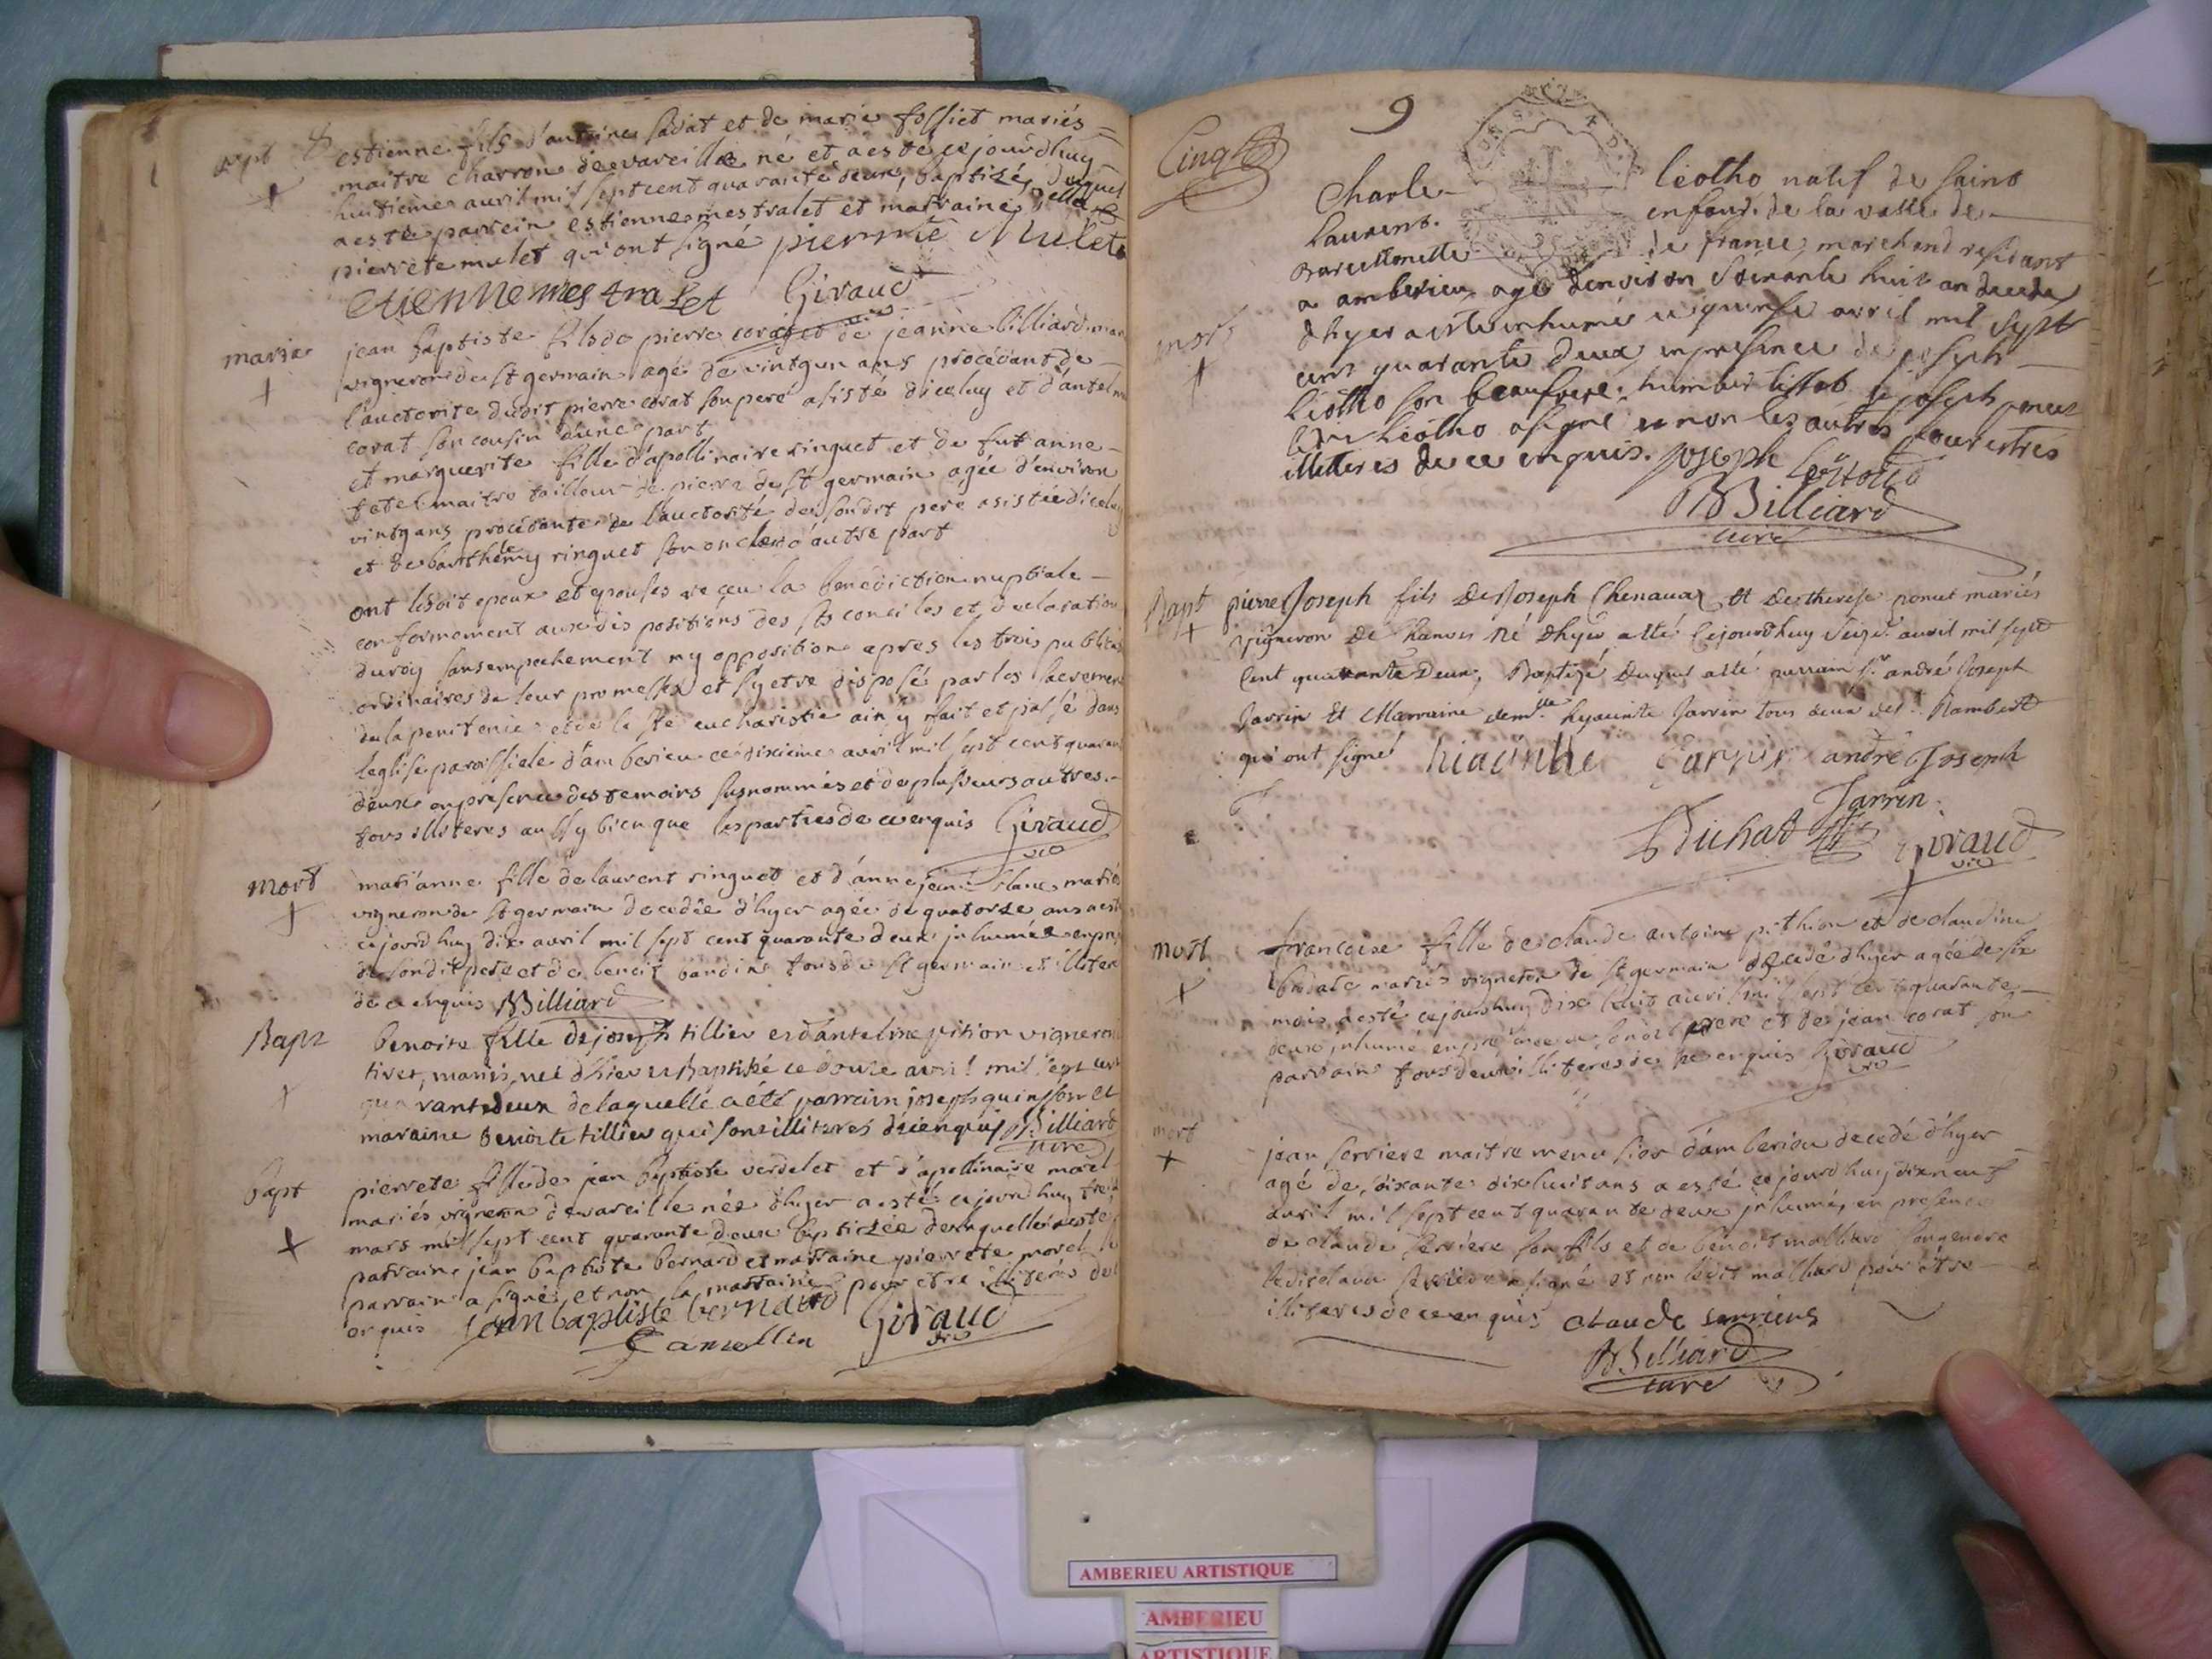 bapt
estienne fils d'antoine sadat et de marie fossiet mariés
maitre charron de vareille né et a esté cejourdhuy
huitieme avril mil sept cent quarante deux, baptizé, duquel
a esté parrein estienne mestralet et marraine delle
pierrete mulet qui ont signé pierrette Mulet
etienne mestralet Giraud vic
mariage
jean baptiste fils de pierre corat et de jeanne billiard
vigneron de St germain agé de vintgun ans procédant de
l'auctorite dudit pierre corat son pere asisté diceluy et d'antelme
corat son cousin d'une part
et marguerite fille d'apollinaire ringuet et de fut anne
tetel maitre tailleur de piere de St germain agée d'environ
vintgans procédante de l'auctorité de sondit pere asistée diceluy
et de barthelemy ringuet son oncle d'autre part
ont lesdit epoux et epouses receu la benediction nuptiale
conformement aux dispositions des sts conciles et declaration
du roy sans empechement ny opposition apres les trois publica
ordinaires de leur promesses et sy etre disposé par les sacremens
de la penitence et de la ste eucharistie ainsy fait et passé dans
leglise paroissiele d'amberieu ce dixieme avril mil sept cent quarante
deux en presence des temoins susnommés et de plusieurs autres
tous illiteres aussy bien que les parties de ce enquis Giraud vic
mort
marianne fille de laurent ringuet et d'anne jeanne blanc mariés
vigneron de St germain decedée d'hyer agée de quatorze ans a esté
cejourdhuy dix avril mil sept cent quarante deux inhumée en pre
de sondit pere et de benoit baudin tous de St germain et illiteres
de ce enquis Billiard
Bapt
benoite fille de joseph tillier et dánteline pition vigneron
tiret, mariés, née d'hier et Baptisé ce douze avril mil sept cent
quarante deux de laquelle a été parrain joseph quinson et
maraine benoite tillier qui sont illiterés de ce enquis Billiard
curé
bapt
pierrete fille de jean baptiste verdelet et d'apollinaire morel
mariés vigneron de vareille née d'hyer a esté cejourdhuy treize
mars mil sept cent quarante deux baptizée de laquelle a esté
parrain jean baptiste bernard et marraine pierrete morel le
parrain a signé et non la marraine pour etre illiterés de ce
enquis jean baptiste bernard Giraud
vic
Cinq
9
mort
Charle Leotho natif de Saint
Laurens enfour de la vallé de
Barcellonette de france, marchend residant
a amberieu agé denviron soixante huit an decedé
dhyer a esté inhumé ce quinse avril mil sept
cent quarante deux en presence de joseph
Léotho son beaufrere, humbert tissot & joseph ponet
ledit Léotho a signé et non les autres pour estres
illiteres de ce enquis. Joseph Leotho
Billiard
curé
Bapt
pierre Joseph fils De Joseph Chenavaz Et De therese ponet mariés
vigneron de Chanves né dhyer a été Cejourdhuy Seize avril mil sept
Cent quarante Deux, Baptisé Duquel a été parrain Sr. andré Joseph
Jarrin Et Marraine demlle hyacinte Jarrin tous deux de St. Rambert
qui ont signé hiacinthe Jarrin andré Joseph
Jarrin
Dichat Giraud
vic
mort
francoise fille de claude antoine pithion et de claudine
mariés vigneron de St germain decedé dhyer agée de six
mois a esté cejourdhuy dix huit avril mil sept cent quarante
deux inhumé en presence de sondit pere et de jean corat son
parrain tous deux illiteres de ce enquis Giraud
vic
mort
jean serriere maitre menusier d'amberieu decedé d'hyer
agé de soixante dix huit ans a esté cejourdhuy dixneuf
avril mil sept cent quarante deux inhumé, en presence
de claude serriere son fils et de benoit malliard son gendre
ledit claude serriere a signé et non ledit malliard pour être
illiteres de ce enquis claude serriere
Billiard
curé
AMBERIEU ARTISTIQUE
AMBERIEU
ARTISTIQUE